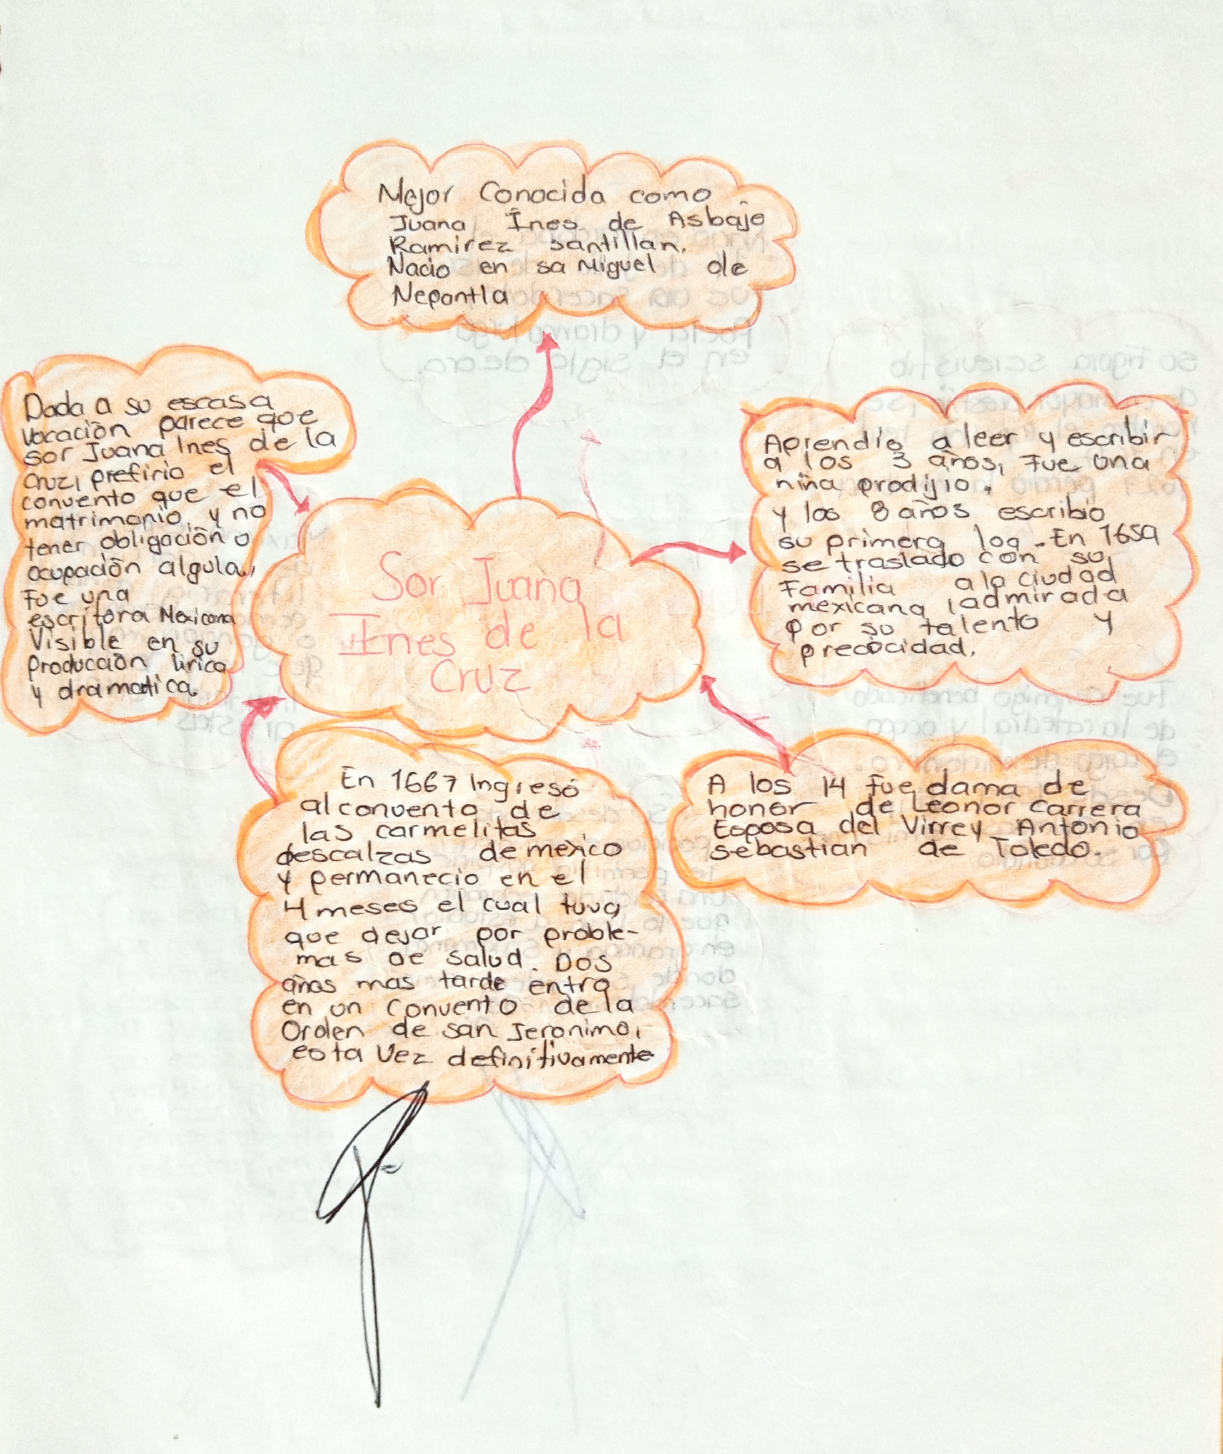 Mejor Conocida como
Juana Ines de Asbaje
Ramirez santillan.
Nacio en sa Miguel de
Nepantla
Dada a su escasa
vocación parece que
sor Juana Ines de la
Cruz, prefirio el
convento que el
matrimonio, y no
tener obligación o
ocupación algula,
Fue una
escritora Mexicana
Visible en su
Producción lirica
y dramatica.
Sor Juana
Ines de la
Cruz
Aprendio a leer y escribir
a los 3 años, Fue una
niña prodijio.
y los 8 años escribio
su primera loa. En 1659
se traslado con su
Familia a la ciudad
mexicana (admirada
por su talento y
precocidad.
En 1667 Ingresó
al convento de
las carmelitas
descalzas de mexico
y permanecio en el
4 meses el cual tuvo
que dejar por proble-
mas de salud. Dos
años mas tarde entro
en un convento de la
Orden de san Jeronimo,
esta vez definitivamente
A los 14 fue dama de
honor de Leonor Carrera
Esposa del Virrey Antonio
sebastian de Toledo.